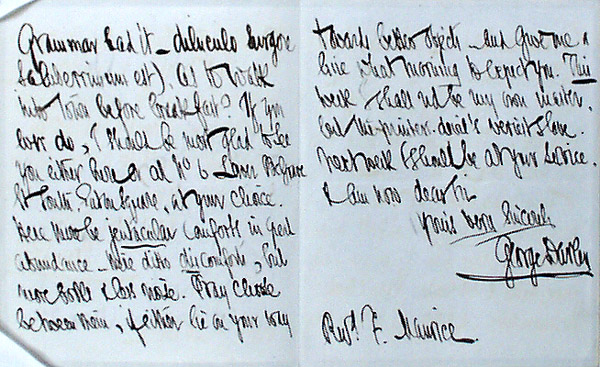 Grammar has it - diluculo surgere
saluberrimum est), as to walk
into Town before breakfast? If you
ever do, I should be most glad to see
you either here or at No 6 Lower Belgrave
St South, Eaton Square, at your choice.
Here more jenticular comforts in great
abundance - there ditto discomforts, but
more books & less noise. Pray choose
between them, if either lie on your way
towards better objects - and give me a
line what morning to expect you. This
week I shall not be my own master,
but the printer's devil's veriest slave.
Next week I should be at your service.
I am now dear Sir
yours very sincerely
George Darley
Revd. F. Maurice.